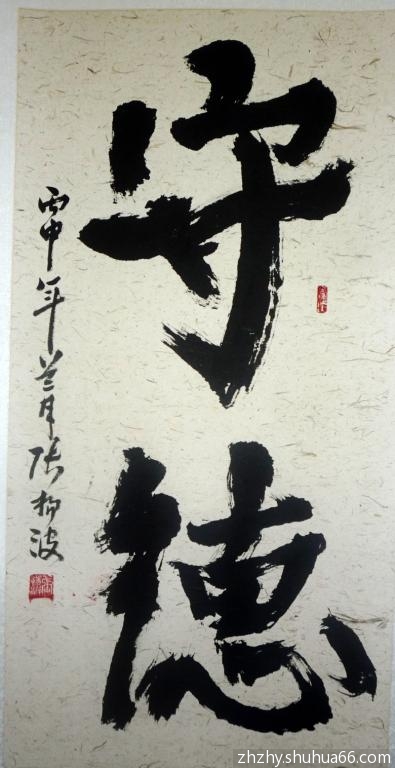 守德
丙申年兰月张柳波
zhzhy.shuhua66.com